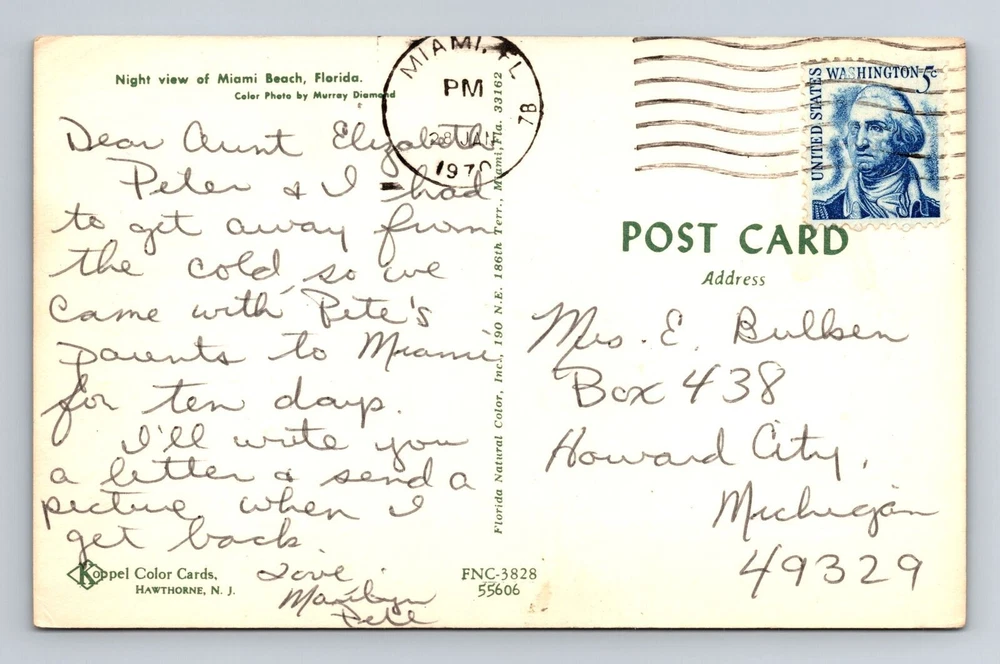 Night view of Miami Beach, Florida.
Color Photo by Murray Diamond
Dear Aunt Elizabeth
Peter & I had
to get away from
the cold, so we
came with Pete's
parents to Miami
for ten days.
I'll write you
a letter & send a
picture when I
get back.
Love
Marilyn
Pete
Koppel Color Cards,
HAWTHORNE, N. J.
FNC-3828
55606
Florida Natural Color, Inc., 190 N.E. 186th Terr., Miami, Fla. 33162
MIAMI, FL
PM
28 JAN
1970
7B
UNITED STATES
WASHINGTON 5c
POST CARD
Address
Mrs. E. Bulksen
Box 438
Howard City,
Michigan
49329